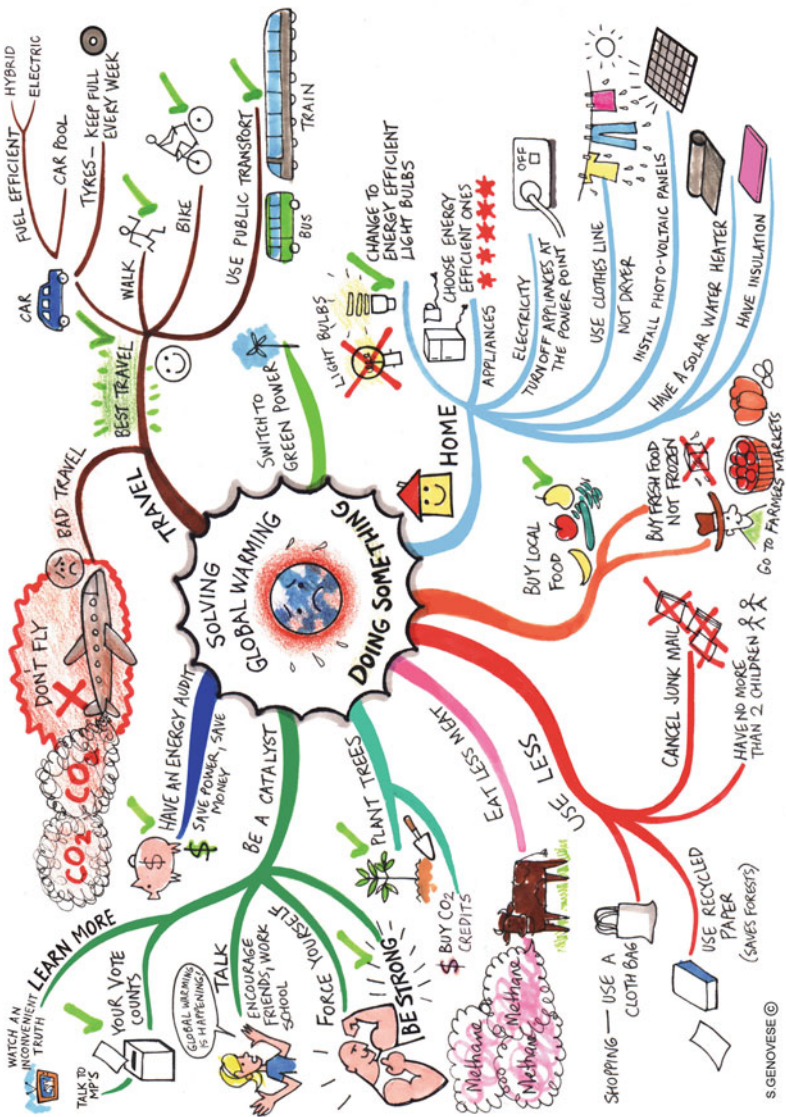 SOLVING
GLOBAL WARMING
DOING SOMETHING
TRAVEL
BAD TRAVEL
DONT FLY
CO2
CO2
BEST TRAVEL
CAR
FUEL EFFICIENT
HYBRID
ELECTRIC
CAR POOL
TYRES – KEEP FULL
EVERY WEEK
WALK
BIKE
USE PUBLIC TRANSPORT
BUS
TRAIN
SWITCH TO
GREEN POWER
HOME
LIGHT BULBS
CHANGE TO
ENERGY EFFICIENT
LIGHT BULBS
APPLIANCES
CHOOSE ENERGY
EFFICIENT ONES
ELECTRICITY
TURN OFF APPLIANCES AT
THE POWER POINT
OFF
USE CLOTHES LINE
NOT DRYER
INSTALL PHOTO-VOLTAIC PANELS
HAVE A SOLAR WATER HEATER
HAVE INSULATION
BUY LOCAL
FOOD
BUY FRESH FOOD
NOT FROZEN
GO TO FARMERS MARKETS
USE LESS
CANCEL JUNK MAIL
HAVE NO MORE
THAN 2 CHILDREN
USE RECYCLED
PAPER
(SAVES FORESTS)
SHOPPING — USE A
CLOTH BAG
EAT LESS MEAT
Methane
Methane
Methane
PLANT TREES
$ BUY CO2
CREDITS
BE A CATALYST
BE STRONG
FORCE YOURSELF
TALK
ENCOURAGE
FRIENDS, WORK
SCHOOL
GLOBAL WARMING
IS HAPPENING!
YOUR VOTE
COUNTS
TALK TO
MP'S
LEARN MORE
WATCH AN
INCONVENIENT
TRUTH
HAVE AN ENERGY AUDIT
$ SAVE POWER, SAVE
MONEY
$
S.GENOVESE ©